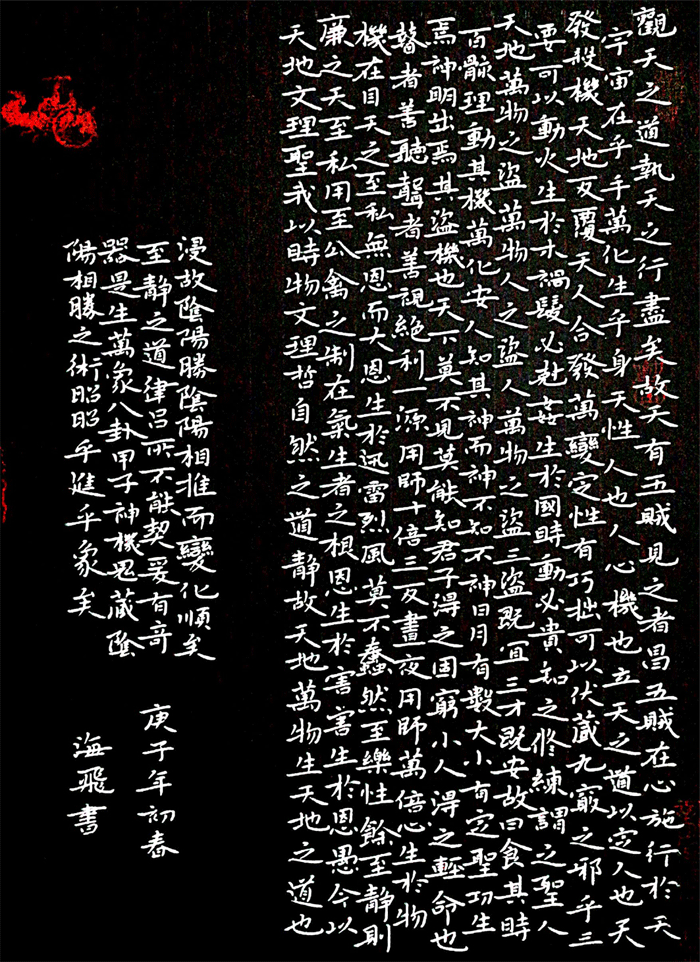 觀天之道執天之行盡矣故天有五賊見之者昌五賊在心施行於天
宇宙在乎手萬化生乎身天性人也人心機也立天之道以定人也天
發殺機天地反覆天人合發萬變定性有巧拙可以伏藏九竅之邪乎三
要可以動火生於木禍髮必尅姦生於國時動必貴知之修練謂之聖人
天地萬物之盜萬物人之盜人萬物之盜三盜既宜三才既安故曰食其時
百骸理動其機萬化安人知其神而神不知不神日月有數大小有定聖功生
焉神明出焉其盜機也天下莫不見莫能知君子得之固窮小人得之輕命也
瞽者善聽聾者善視絕利一源用師十倍三反晝夜用師萬倍心生於物
機在目天之至私無恩而大恩生於迅雷烈風莫不蠢然至樂性餘至靜則
廉之天至私用至公禽之制在氣生者之根恩生於害害生於恩愚今以
天地文理聖我以時物文理哲自然之道靜故天地萬物生天地之道也
浸故陰陽勝陰陽相推而變化順矣
至靜之道律呂所不能契爰有奇
器是生萬象八卦甲子神機鬼藏陰
陽相勝之術昭昭乎進乎象矣
庚子年初春
海飛書